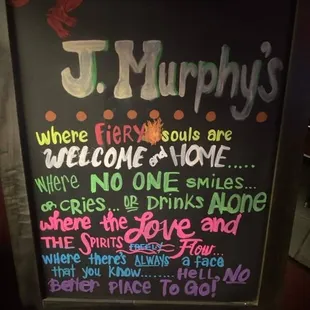 J. Murphy's
where Fiery souls are
WELCOME and HOME.....
Where NO ONE smiles...
or cries... OR Drinks ALONE
where the Love and
THE SPIRITS FREELY Flow...
where there's ALWAYS a face
that you know...... Hell, NO
Better Place To Go!